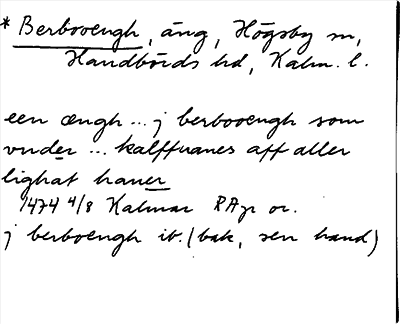 * Berbooengh, äng, Högsby sn,
Handbörds hd, Kalm. l.
een ængh ... j berbooengh som
vnder ... kalffuanes aff aller
lighat hauer
1474 4/8 Kalmar RApr or.
j berboengh ib. (bak, sen hand)